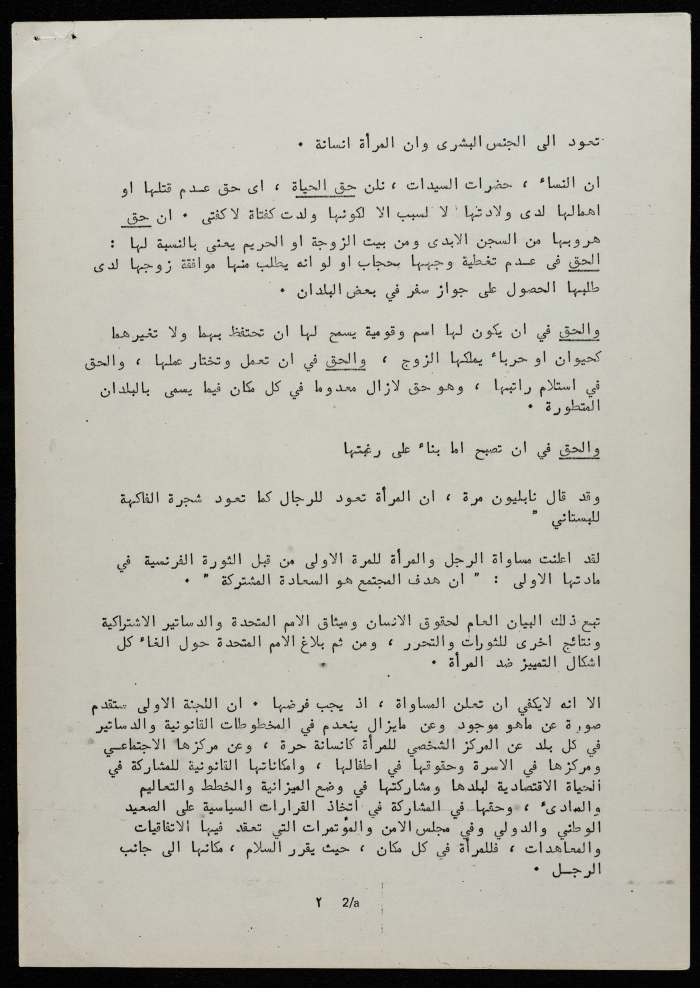 تعود الى الجنس البشرى وان المرأة انسانة ٠
ان النساء ، حضرات السيدات ، نلن حق الحياة ، اى حق عدم قتلها او
اهمالها لدى ولادتها لا لسبب الا لكونها ولدت كفتاة لا كفتى ٠ ان حق
هروبها من السجن الابدى ومن بيت الزوجة او الحريم يعنى بالنسبة لها :
الحق فى عدم تغطية وجهها بحجاب او لو انه يطلب منها موافقة زوجها لدى
طلبها الحصول على جواز سفر في بعض البلدان ٠
والحق في ان يكون لها اسم وقومية يسمح لها ان تحتفظ بهما ولا تغيرهما
كحيوان او حرباء يملكها الزوج ، والحق في ان تعمل وتختار عملها ، والحق
في استلام راتبها ، وهو حق لازال معدوما في كل مكان فيما يسمى بالبلدان
المتطورة ٠
والحق في ان تصبح اما بناء على رغبتها
وقد قال نابليون مرة ، ان المرأة تعود للرجال كما تعود شجرة الفاكهة
للبستاني "
لقد اعلنت مساواة الرجل والمرأة للمرة الاولى من قبل الثورة الفرنسية في
مادتها الاولى : " ان هدف المجتمع هو السعادة المشتركة " ٠
تبع ذلك البيان العام لحقوق الانسان وميثاق الامم المتحدة والدساتير الاشتراكية
ونتائج اخرى للثورات والتحرر ، ومن ثم بلاغ الامم المتحدة حول الغاء كل
اشكال التمييز ضد المرأة ٠
الا انه لايكفي ان تعلن المساواة ، اذ يجب فرضها ٠ ان اللجنة الاولى ستقدم
صورة عن ماهو موجود وعن مايزال ينعدم في المخطوطات القانونية والدساتير
في كل بلد عن المركز الشخصي للمرأة كانسانة حرة ، وعن مركزها الاجتماعي
ومركزها في الاسرة وحقوقها في اطفالها ، وامكاناتها القانونية للمشاركة في
الحياة الاقتصادية لبلدها ومشاركتها في وضع الميزانية والخطط والتعاليم
والمبادىء ، وحقها في المشاركة في اتخاذ القرارات السياسية على الصعيد
الوطني والدولي وفي مجلس الامن والمؤتمرات التي تعقد فيها الاتفاقيات
والمعاهدات ، فللمرأة في كل مكان ، حيث يقرر السلام ، مكانها الى جانب
الرجل ٠
٢ 2/a